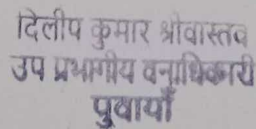 दिलीप कुमार श्रीवास्तव
उप प्रभागीय वनाधिकारी
पुवायाँ